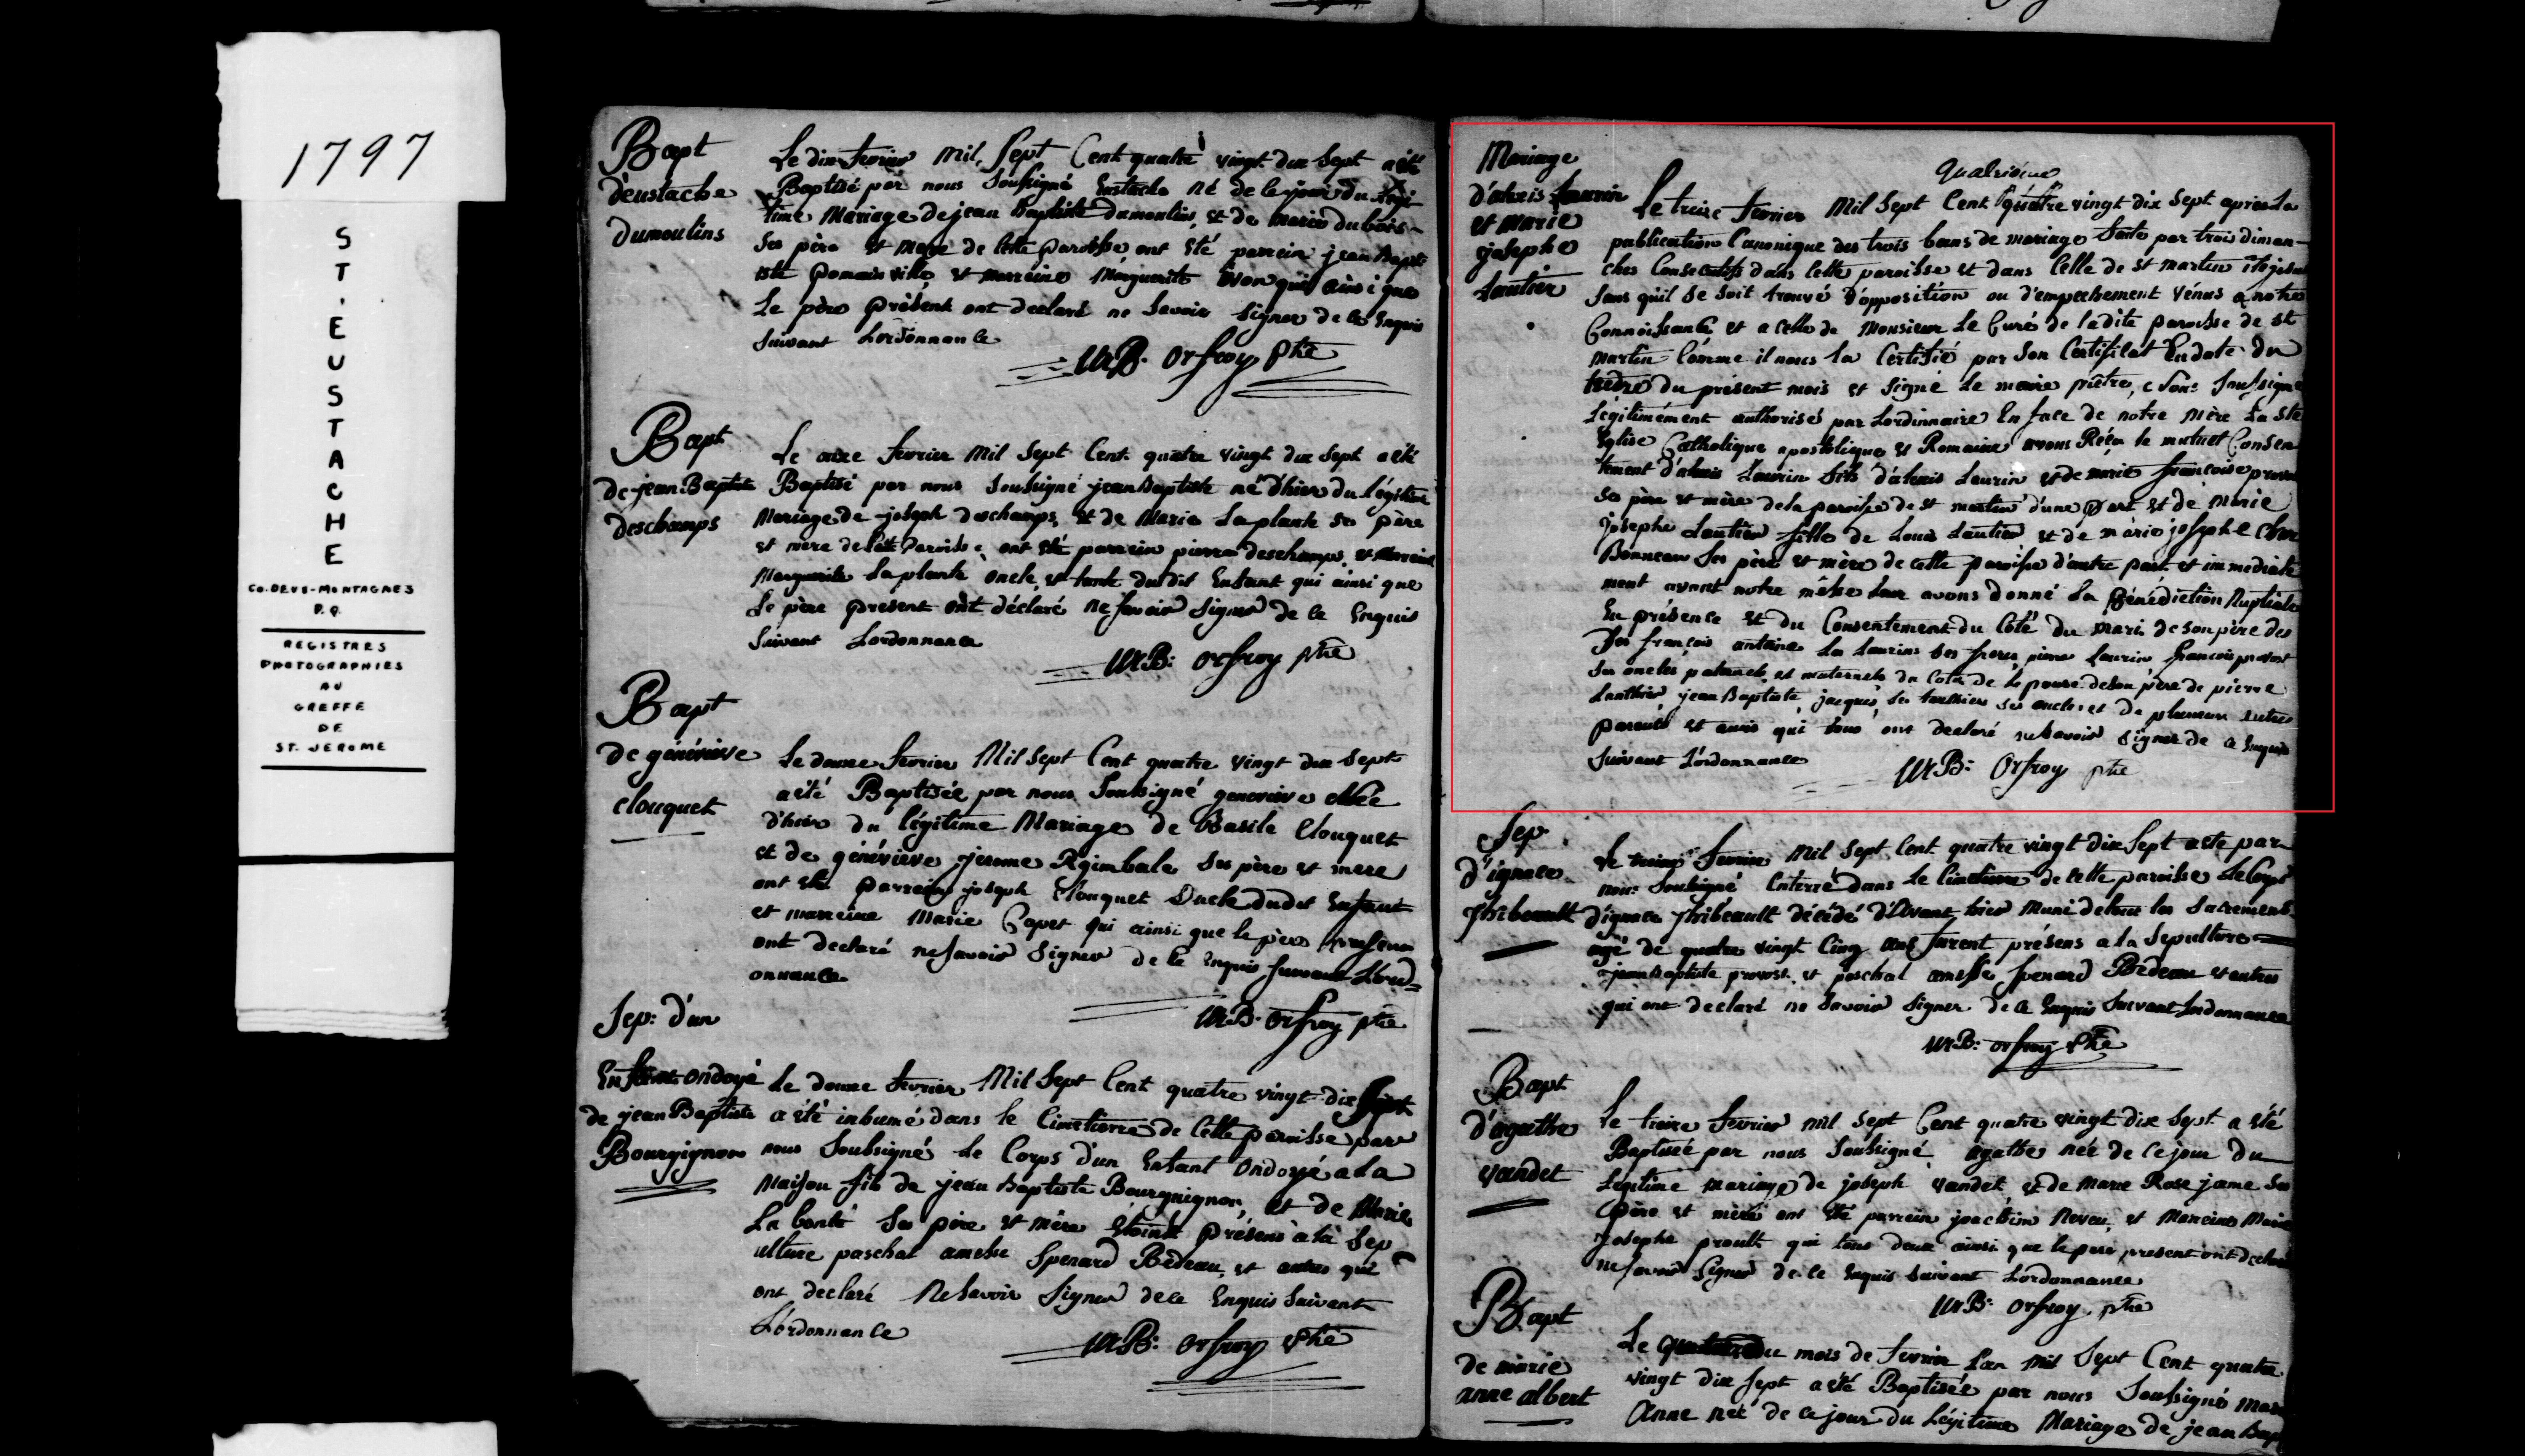 1797
ST. EUSTACHE
CO. DEUX-MONTAGNES
P.Q.
REGISTRES
PHOTOGRAPHIES
AU
GREFFE
DE
ST. JEROME
Bapt
d'eustache
Dumoulins
Le dix fevrier Mil Sept Cent quatre vingt dix Sept a été
Baptisé par nous Soussigné Eustache né de le jour du Legi
time Mariage de jean Baptiste Dumoulins, et de Marie Dubois
Ses père et Mere de Cette paroisse ont été parrein jean Bapt
iste et marreine Marguerite qui ainsi que
Le père présent ont declaré ne Savoir Signer de ce Enquis
Suivant Lordonnance
MB: Orfroy ptre
Bapt
de jean Baptiste
deschamps
Le onze fevrier Mil Sept Cent quatre vingt dix Sept a été
Baptisé par nous Soussigné jean Baptiste né d'hier du Légitime
Mariage de joseph deschamps, et de Marie Laplante Ses père
et mere de Cette Paroisse, ont été parrein pierre deschamps, et Marreine
Marguerite Laplante oncle, et tante dudit Enfant qui ainsi que
Le père present ont déclaré ne Savoir Signer de ce Enquis
Suivant Lordonnance
MB: Orfroy ptre
Bapt
de généviève
Clouquet
Le douze fevrier Mil Sept Cent quatre vingt dix Sept
a été Baptisée par nous Soussigné genevieve Née
d'hier du légitime Mariage de Basile Clouquet
et de généviève jerome Rgimbale Ses père et mere
ont été parrein joseph Clouquet Oncle dudit Enfant
et marreine Marie Capet qui ainsi que le père present
ont declaré ne Savoir Signer de ce Enquis Suivant Lord=
onnance
MB: Orfroy ptre
Sep: d'un
Enfant ondoyé
de jean Baptiste
Bourgignon
Le douze fevrier Mil Sept Cent quatre vingt dix Sept
a été inhumé dans le Cimetierre de Cette paroisse par
nous Soussigné Le Corps d'un Enfant Ondoyé a la
Maison fils de jean Baptiste Bourguignon, et de Marie
La bonté Ses père et Mère étoient présens à la Sep
ulture paschal amesse Spenard Bedeau, et autres qui
ont declaré Ne Savoir Signer de ce Enquis Suivant
L'ordonnance
MB: Orfroy ptre
Mariage
d'alexis Laurin
et Marie
josephe
Lautier
quatrieme
Le treize fevrier Mil Sept Cent quatre vingt dix Sept apres La
publication Canonique des trois bans de mariage faite par trois diman-
ches Consecutifs dans Cette paroisse et dans Celle de St Martin
Sans qu'il Se Soit trouvé d'opposition ou d'empechement Vénus a notre
Connoissance, et a Celle de Monsieur Le Curé de ladite paroisse de St
Martin Comme il nous la Certifié par Son Certificat En date du
du présent mois et Signé Le maire prêtre, Nous Soussigné
Légitimément authorisé par Lordinnaire En face de notre Mère La Ste
Eglise Catholique apostolique et Romaine avons Reçu le mutuel Consen
tement d'alexis Laurin fils d'alexis Laurin et de marie françoise
Ses père et mère de la paroisse de St martin d'une part et de Marie
josephe Lautier fille de Louis Lautier et de marie josephe Char
Bonneau Ses père et mère de cette paroisse d'autre part et immediate
ment avant notre messe Leur avons donné La Bénédiction Nuptiale
En présence et du Consentement du Coté du Mari de Son père des
françois antoine Les Laurins Ses freres, pierre Laurin françois provost
Ses oncles paternels et maternels du Coté de Lepouse de Son père de pierre
Lauthier, jean Baptiste, jacques, Les Lauthiers Ses oncles et de plusieurs autres
parents et amis qui tous ont declaré ne Savoir Signer de ce Enquis
Suivant L'ordonnance
MB: Orfroy ptre
Sep.
d'ignace
Thibeault
Le treize fevrier Mil Sept Cent quatre vingt dix Sept a été par
nous Soubsigné Enterré dans Le Cimetierre de Cette paroisse Le Corps
d'ignace Thibeault décédé d'avant hier Muni de tous les Sacremens
agé de quatre vingt Cinq ans furent présens a la Sepulture
jean Baptiste provost, et paschal amesse Spenard Bedeau et autres
qui ont declaré ne Savoir Signer de ce Enquis Suivant Lordonnance
MB: Orfroy ptre
Bapt
d'agathe
Vandet
Le treize fevrier Mil Sept Cent quatre vingt dix Sept a été
Baptisée par nous Soussigné agathe née de ce jour du
Legitime Mariage de joseph Vandet, et de Marie Rose jame Ses
père et mère ont été parrein joachim Neveu, et Marreine Marie
josephe proulx qui tous deux ainsi que le père present ont declaré
ne Savoir Signer de ce Enquis Suivant Lordonnance
MB: Orfroy, ptre
Bapt
de marie
anne albert
Le du mois de fevrier Lan Mil Sept Cent quatre
vingt dix Sept a été Baptisée par nous Soussigné Marie
Anne née de ce jour du Légitime Mariage de jean Bap